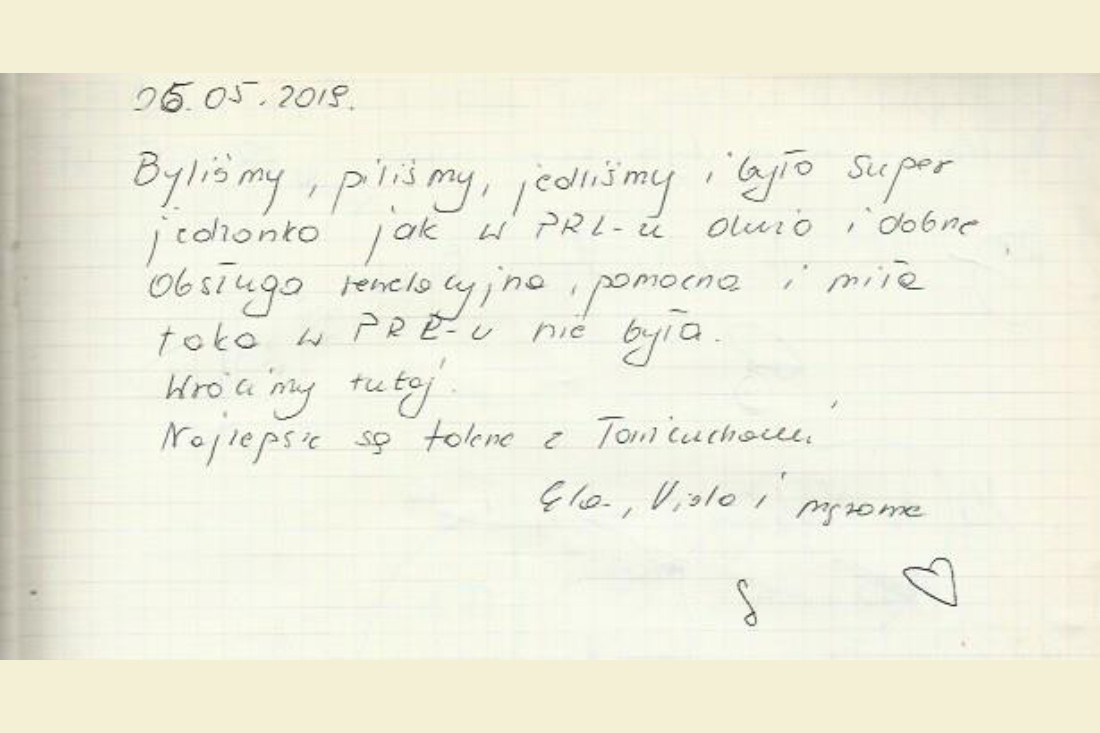 26.05.2019.
Byliśmy, piliśmy, jedliśmy i było super
jedzonko jak w PRL-u dużo i dobre
Obsługa rewelacyjna, pomocna i miła
taka w PRL-u nie była.
Wrócimy tutaj.
Najlepsze są talerze z
Ela, Viola i